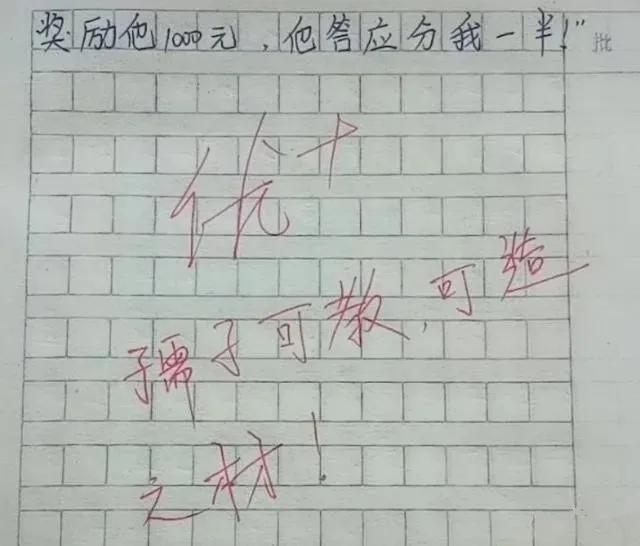 奖励他1000元，他答应分我一半！"
批
优+
孺子可教，可造
之材！